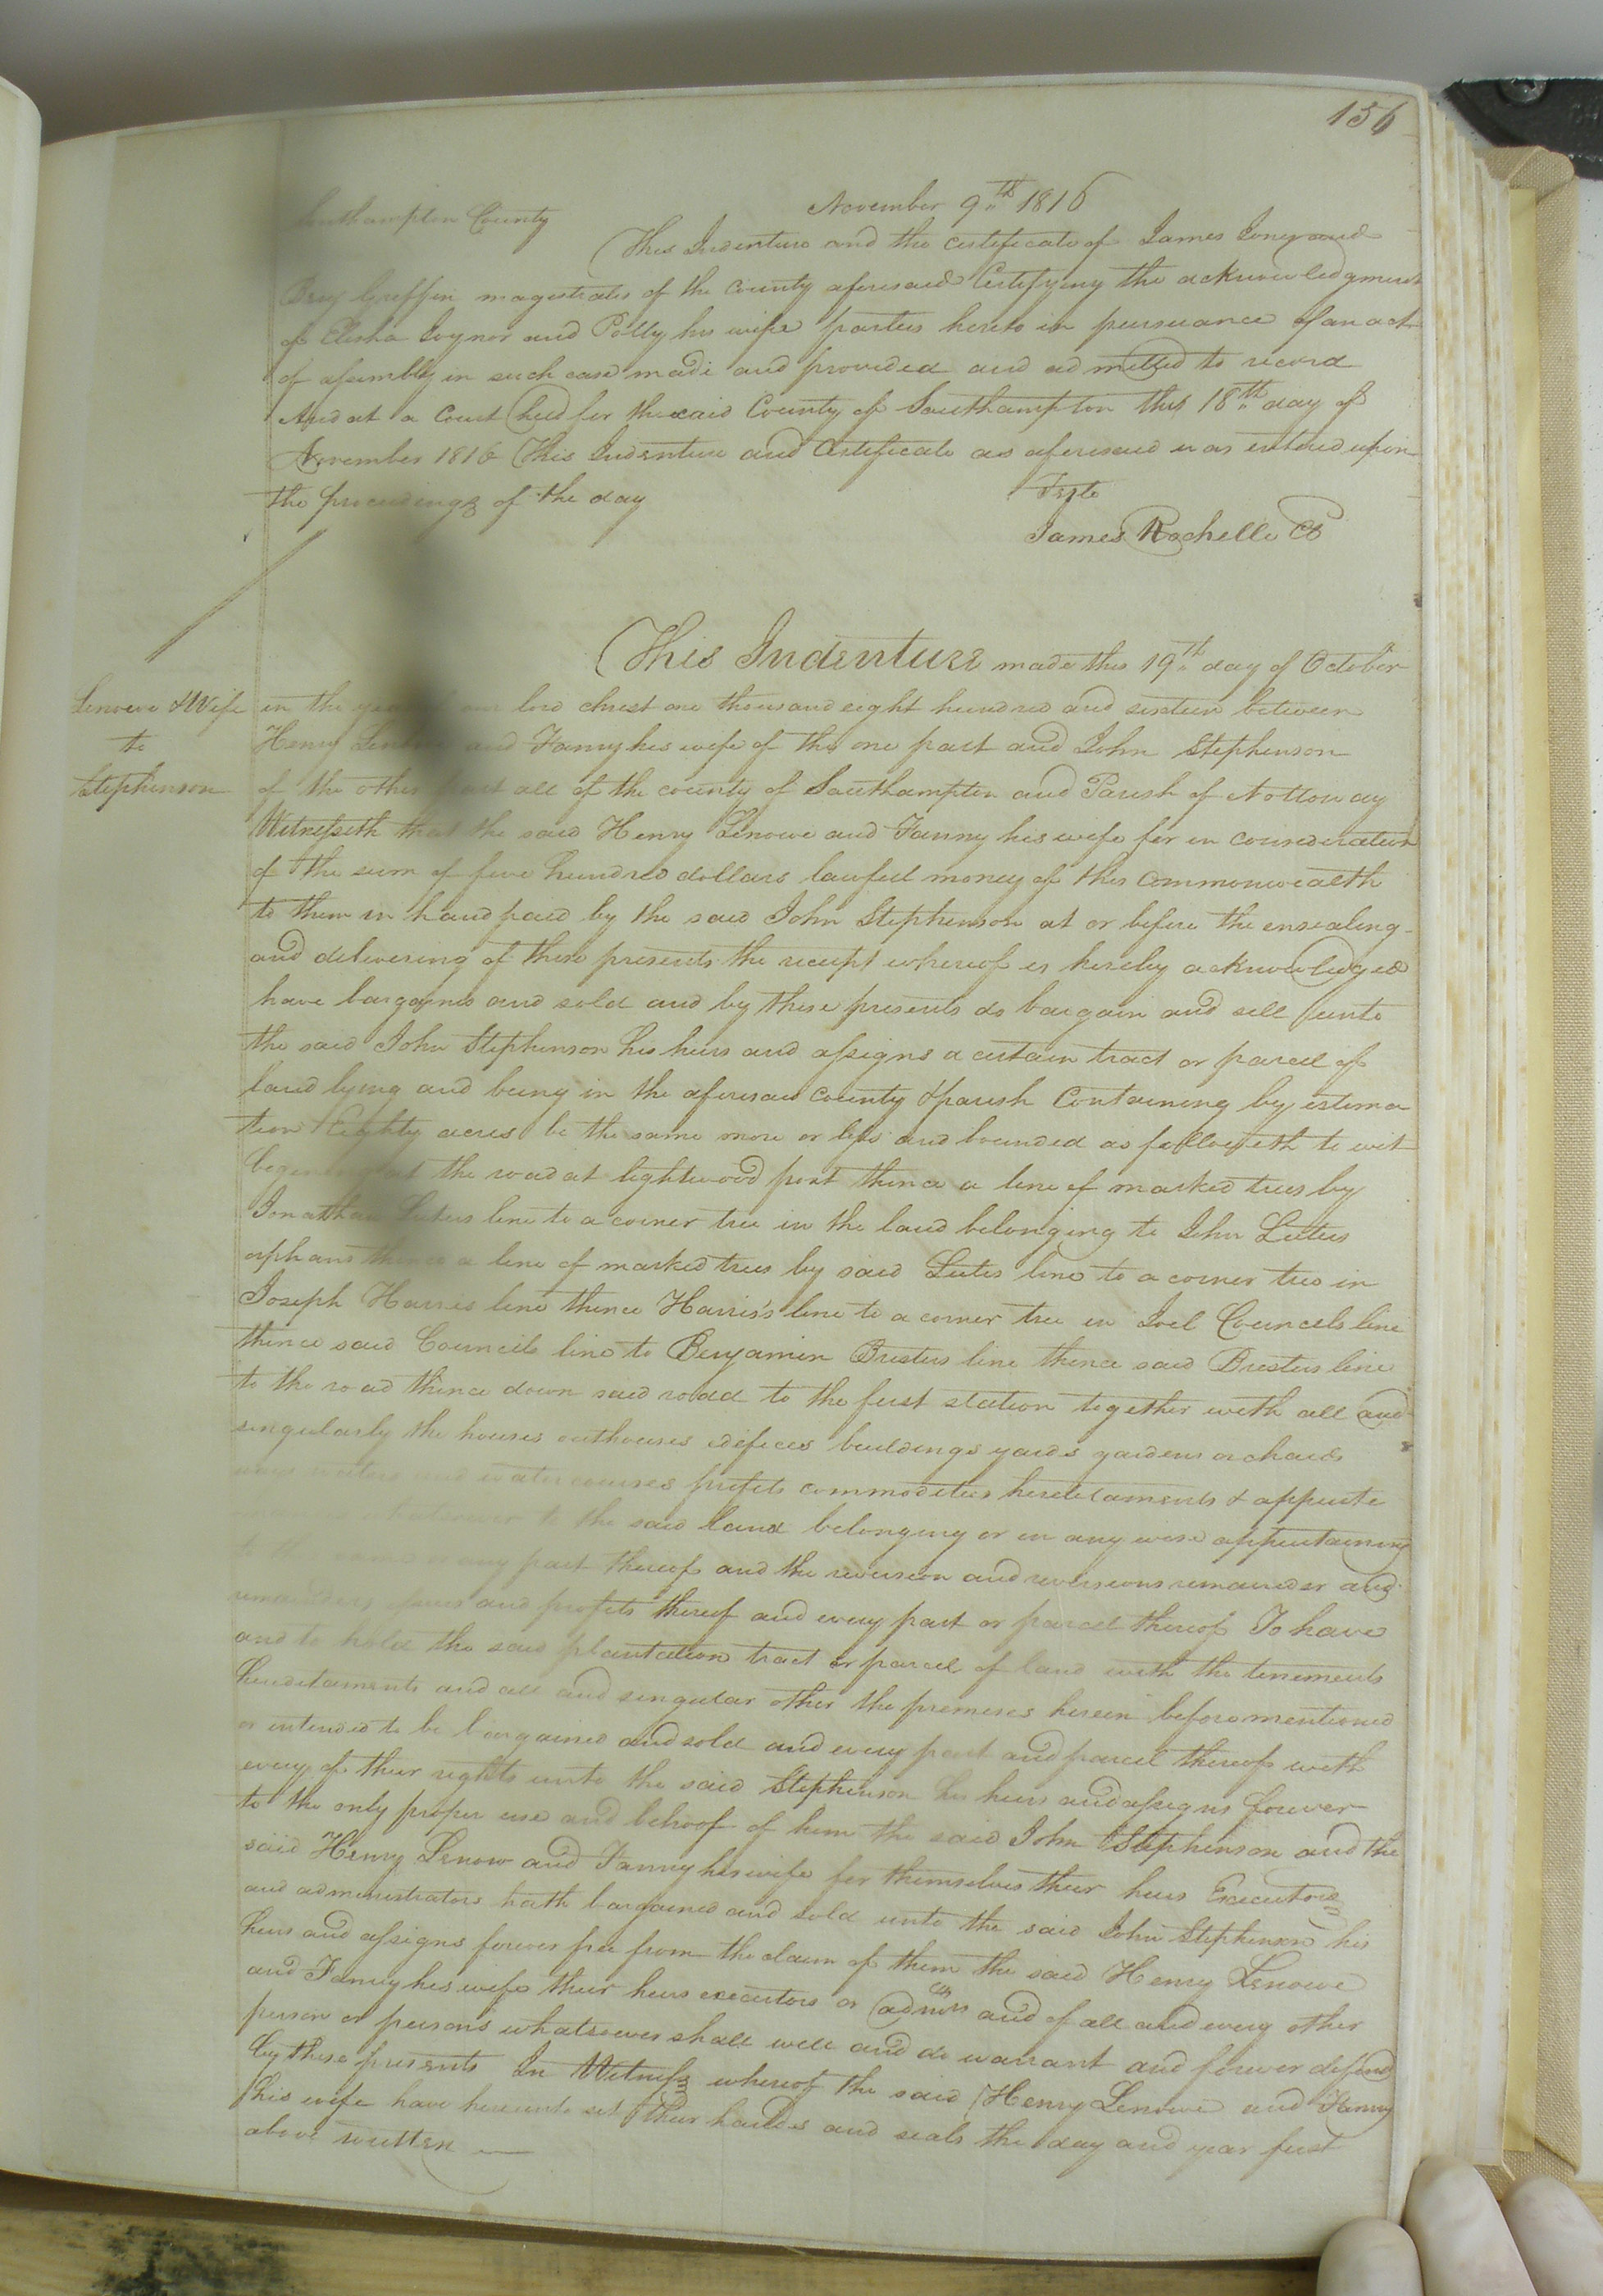 156
Southampton County November 9th 1816
This Indenture and the certificate of James Jones and
Benj Griffin magistrates of the County aforesaid Certifying the acknowledgment
of Elisha Joyner and Polly his wife parties hereto in pursuance of an act
of assembly in such case made and provided and admitted to record
And at a Court held for the said County of Southampton the 18th day of
November 1816 This Indenture and Certificate as aforesaid was entered upon
the proceedings of the day Teste
James Rochelle
This Indenture made this 19th day of October
Lenowe & Wife
to
Stephenson
in the year our lord christ one thousand eight hundred and sixteen between
Henry and Fanny his wife of the one part and John Stephenson
of the other part all of the county of Southampton and Parish of Nottoway
Witnesseth that the said Henry Lenowe and Fanny his wife for in consideration
of the sum of five hundred dollars lawful money of this commonwealth
to them in hand paid by the said John Stephenson at or before the ensealing
and delivering of these presents the receipt whereof is hereby acknowledged
have bargained and sold and by these presents do bargain and sell unto
the said John Stephenson his heirs and assigns a certain tract or parcel of
land lying and being in the aforesaid county & parish Containing by estima
tion Eighty acres be the same more or less and bounded as followeth to wit
begining at the road at lightwood post thence a line of marked trees by
Jonathan Luters line to a corner tree in the land belonging to John Luters
orphans thence a line of marked trees by said Luters line to a corner tree in
Joseph Harris line thence Harris's line to a corner tree in Joel Councels line
thence said Councils line to Benjamin Bristers line thence said Bristers line
to the road thence down said road to the first station together with all and
singularly the houses outhouses edifices buildings yards gardens orchards
ways waters and watercourses profits commodities hereditaments & appurte
whatsoever to the said land belonging or in any wise appertaining
to the same or any part thereof and the reversion and reversions remainder and
remainders and profits thereof and every part or parcel thereof To have
and to hold the said plantation tract or parcel of land with the tenements
hereditaments and all and singular other the premises herein before mentioned
or intended to be bargained and sold and every part and parcel thereof with
every of their rights unto the said Stephenson his heirs and assigns forever
to the only proper use and behoof of him the said John Stephenson and the
said Henry Lenow and Fanny his wife for themselves their heirs Executors
and administrators hath bargained and sold unto the said John Stephenson his
heirs and assigns forever free from the claim of them the said Henry Lenowe
and Fanny his wife their heirs executors or admrs and of all and every other
person or persons whatsoever shall well and do warrant and forever defend
by these presents In Witness whereof the said Henry Lenowe and Fanny
his wife have hereunto set their hands and seals the day and year first
above written